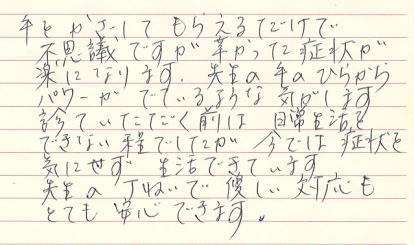 手をかざしてもらえるだけで
不思議ですが辛かった症状が
楽になります。先生の手のひらから
パワーがでているような気がします
診ていただく前は 日常生活も
できない程でしたが 今では症状を
気にせず 生活できています
先生の丁ねいで優しい対応も
とても安心できます。